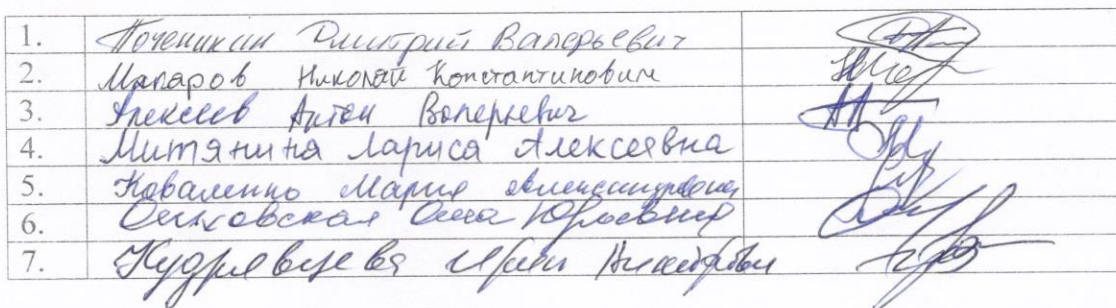 1. Поченикин Дмитрий Валерьевич
2. Макаров Николай Константинович
3. Алексеев Антон Валерьевич
4. Митянина Лариса Алексеевна
5. Коваленко Мария Александровна
6. Юрьевна
7. Кудрявцева